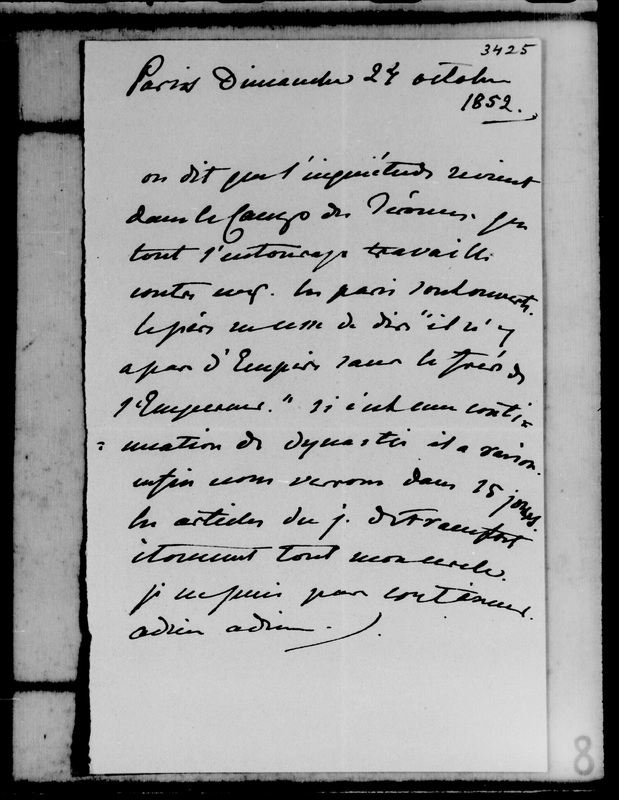 3425
Paris Dimanche 24 octobre
1852.
on dit que l'inquiétude revient
dans le Camp des Jérômes. que
tout l'entourage travaille
contre eux. les paris sont ouverts.
le père ne cesse de dire "il n'y
a pas d'Empire sans le frère de
l'Empereur." si c'est une conti=
=nuation de dynastie il a raison.
enfin nous verrons dans 15 jours.
les articles du j. de Francfort
étonnent tout mon cercle.
je ne puis pas continuer.
adieu adieu.
8